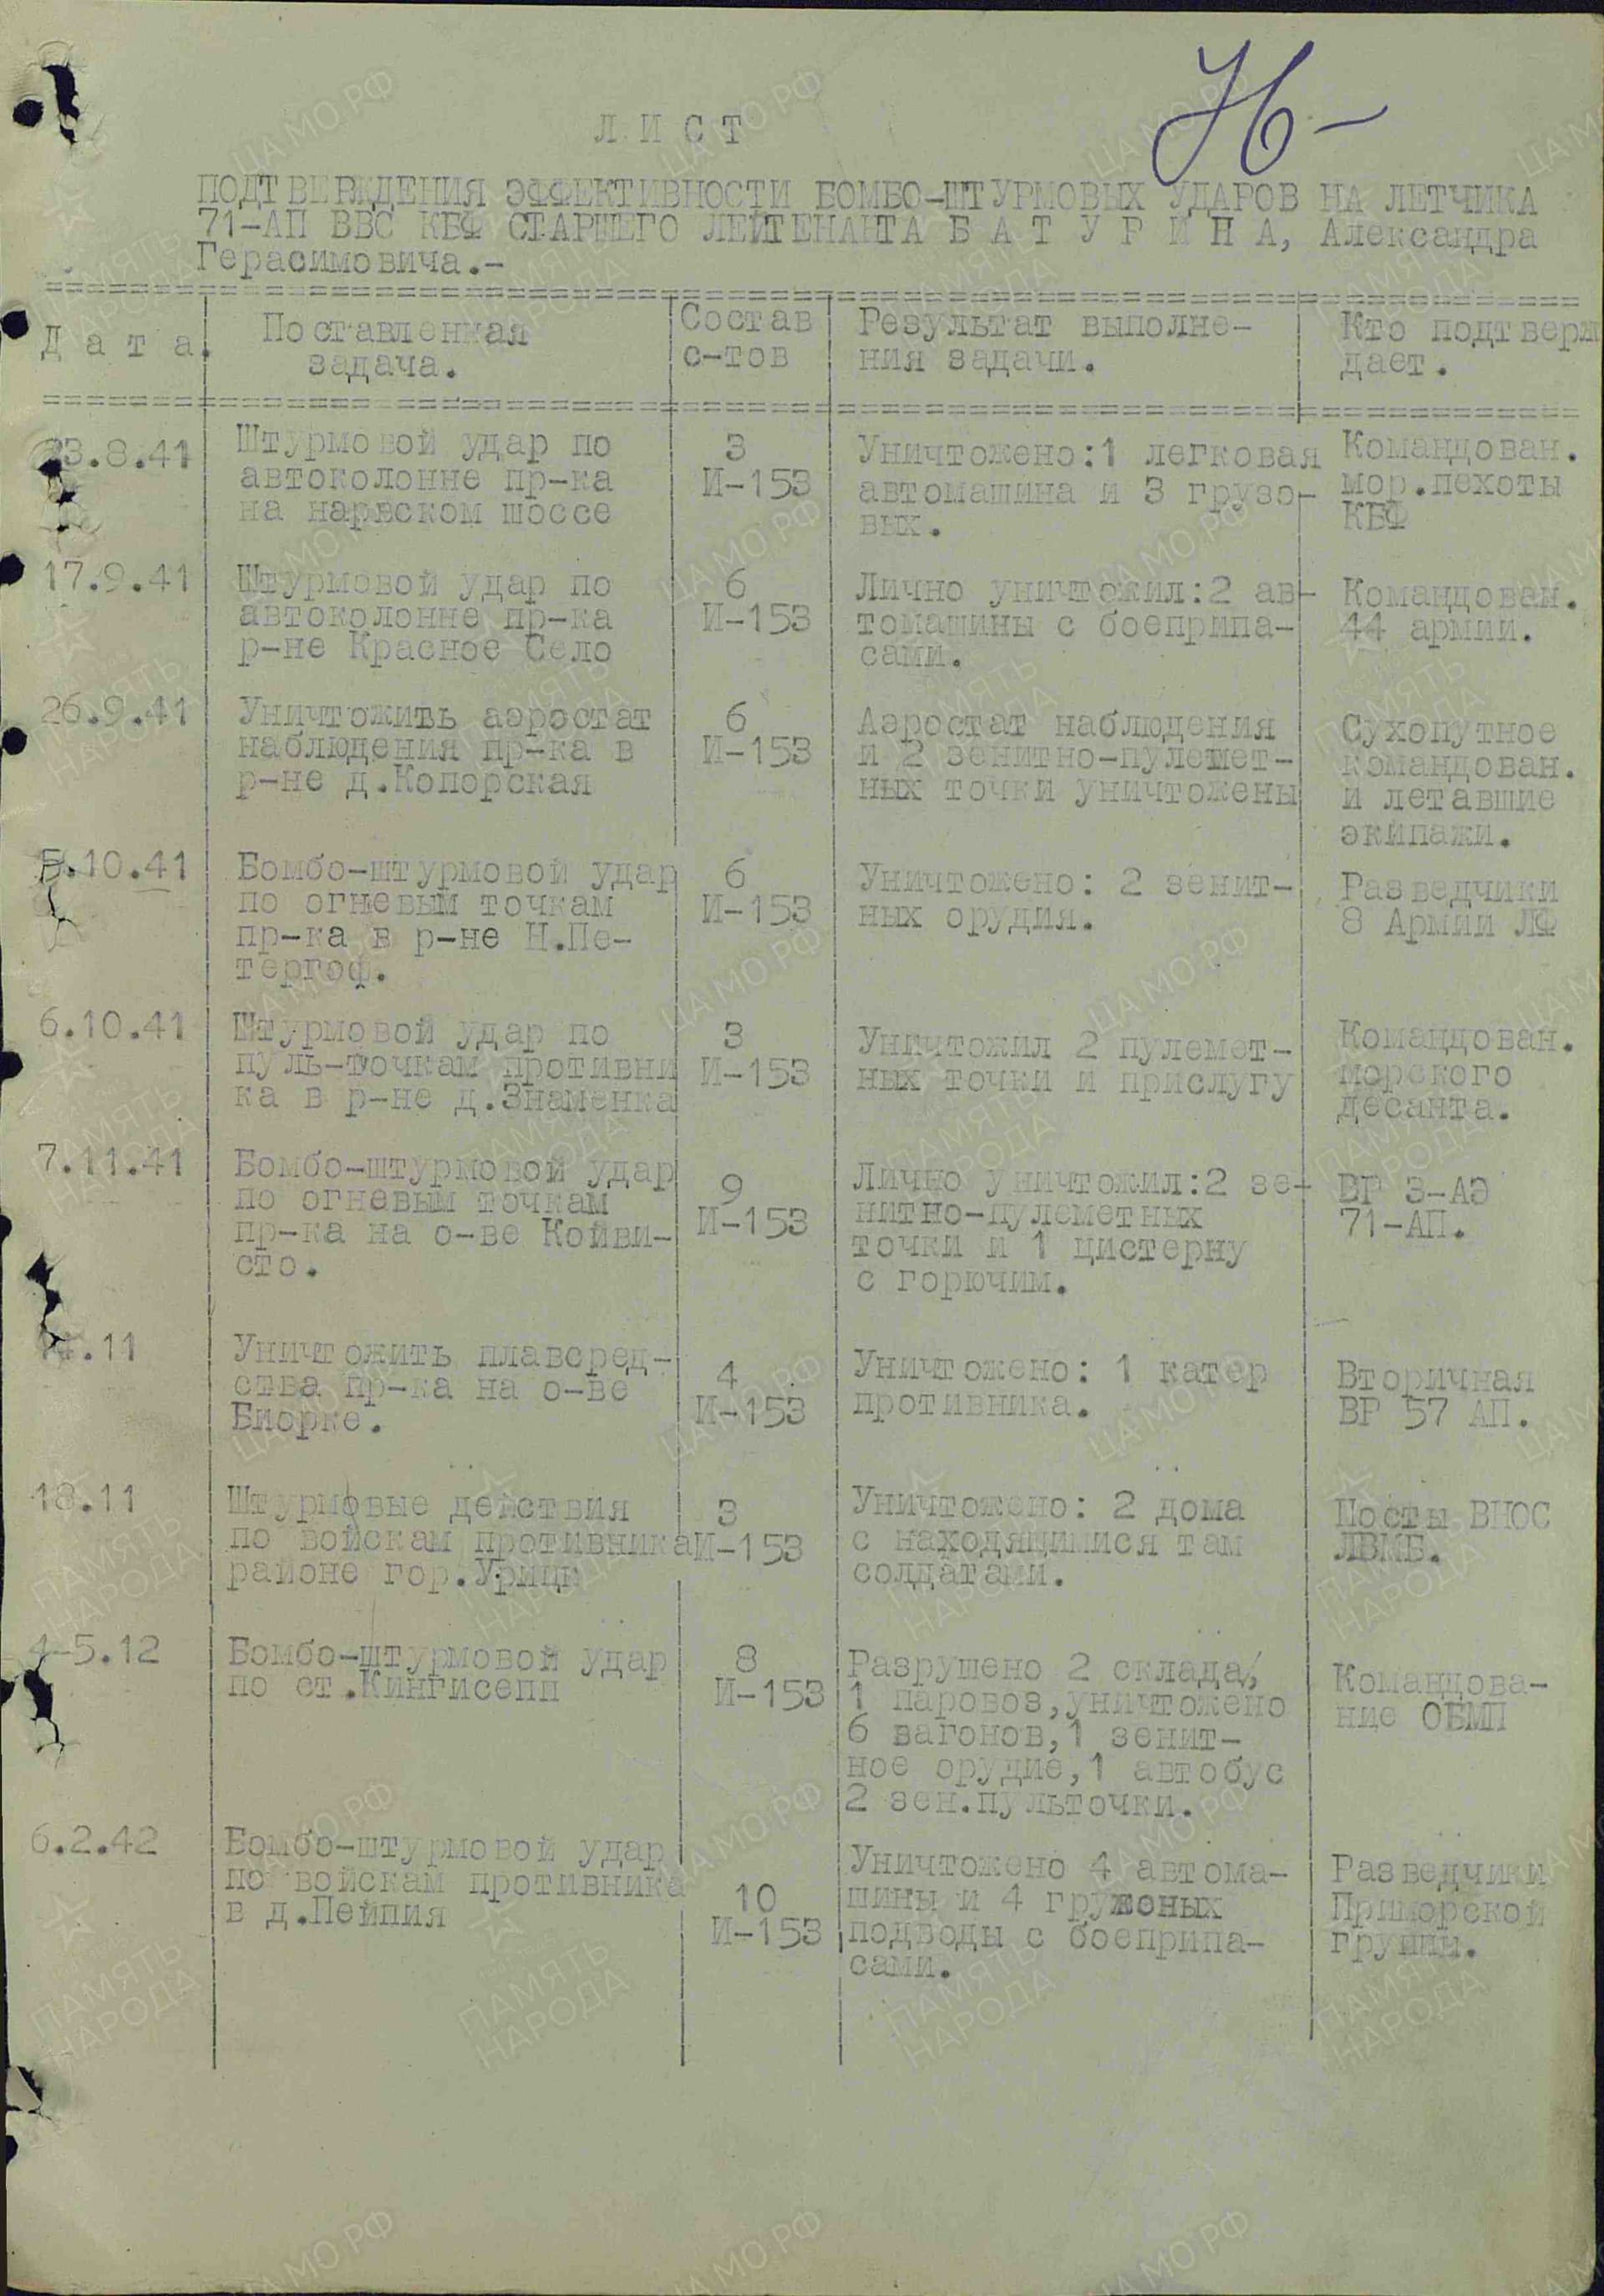 Л И С Т
ПОДТВЕРЖДЕНИЯ ЭФФЕКТИВНОСТИ БОМБО-ШТУРМОВЫХ УДАРОВ НА ЛЕТЧИКА
71-АП ВВС КБФ СТАРШЕГО ЛЕЙТЕНАНТА Б А Т У Р И Н А, Александра
Герасимовича.-
Д а т а.
Поставленная
задача.
Состав
с-тов
Результат выполне-
ния задачи.
Кто подтверж
дает.
23.8.41
Штурмовой удар по
автоколонне пр-ка
на нарвском шоссе
3
И-153
Уничтожено:1 легковая
автомашина и 3 грузо-
вых.
Командован.
мор.пехоты
КБФ
17.9.41
Штурмовой удар по
автоколонне пр-ка
р-не Красное Село
6
И-153
Лично уничтожил:2 ав-
томашины с боеприпа-
сами.
Командован.
44 армии.
26.9.41
Уничтожить аэростат
наблюдения пр-ка в
р-не д.Копорская
6
И-153
Аэростат наблюдения
и 2 зенитно-пулемет-
ных точки уничтожены
Сухопутное
командован.
и летавшие
экипажи.
5.10.41
Бомбо-штурмовой удар
по огневым точкам
пр-ка в р-не Н.Пе-
тергоф.
6
И-153
Уничтожено: 2 зенит-
ных орудия.
Разведчики
8 Армии ЛФ
6.10.41
Штурмовой удар по
пуль-точкам противни
ка в р-не д.Знаменка
3
И-153
Уничтожил 2 пулемет-
ных точки и прислугу
Командован.
морского
десанта.
7.11.41
Бомбо-штурмовой удар
по огневым точкам
пр-ка на о-ве Койви-
сто.
9
И-153
Лично уничтожил:2 зе-
нитно-пулеметных
точки и 1 цистерну
с горючим.
ВР 3-АЭ
71-АП.
14.11
Уничтожить плавсред-
ства пр-ка на о-ве
Биорке.
4
И-153
Уничтожено: 1 катер
противника.
Вторичная
ВР 57 АП.
18.11
Штурмовые действия
по войскам противника
районе гор.Урицк
3
И-153
Уничтожено: 2 дома
с находящимися там
солдатами.
Посты ВНОС
ЛВМБ.
4-5.12
Бомбо-штурмовой удар
по ст.Кингисепп
8
И-153
Разрушено 2 склада,
1 паровоз,уничтожено
6 вагонов,1 зенит-
ное орудие,1 автобус
2 зен.пульточки.
Командова-
ние ОБМП
6.2.42
Бомбо-штурмовой удар
по войскам противника
в д.Пейпия
10
И-153
Уничтожено 4 автома-
шины и 4 груженых
подводы с боеприпа-
сами.
Разведчики
Приморской
группы.